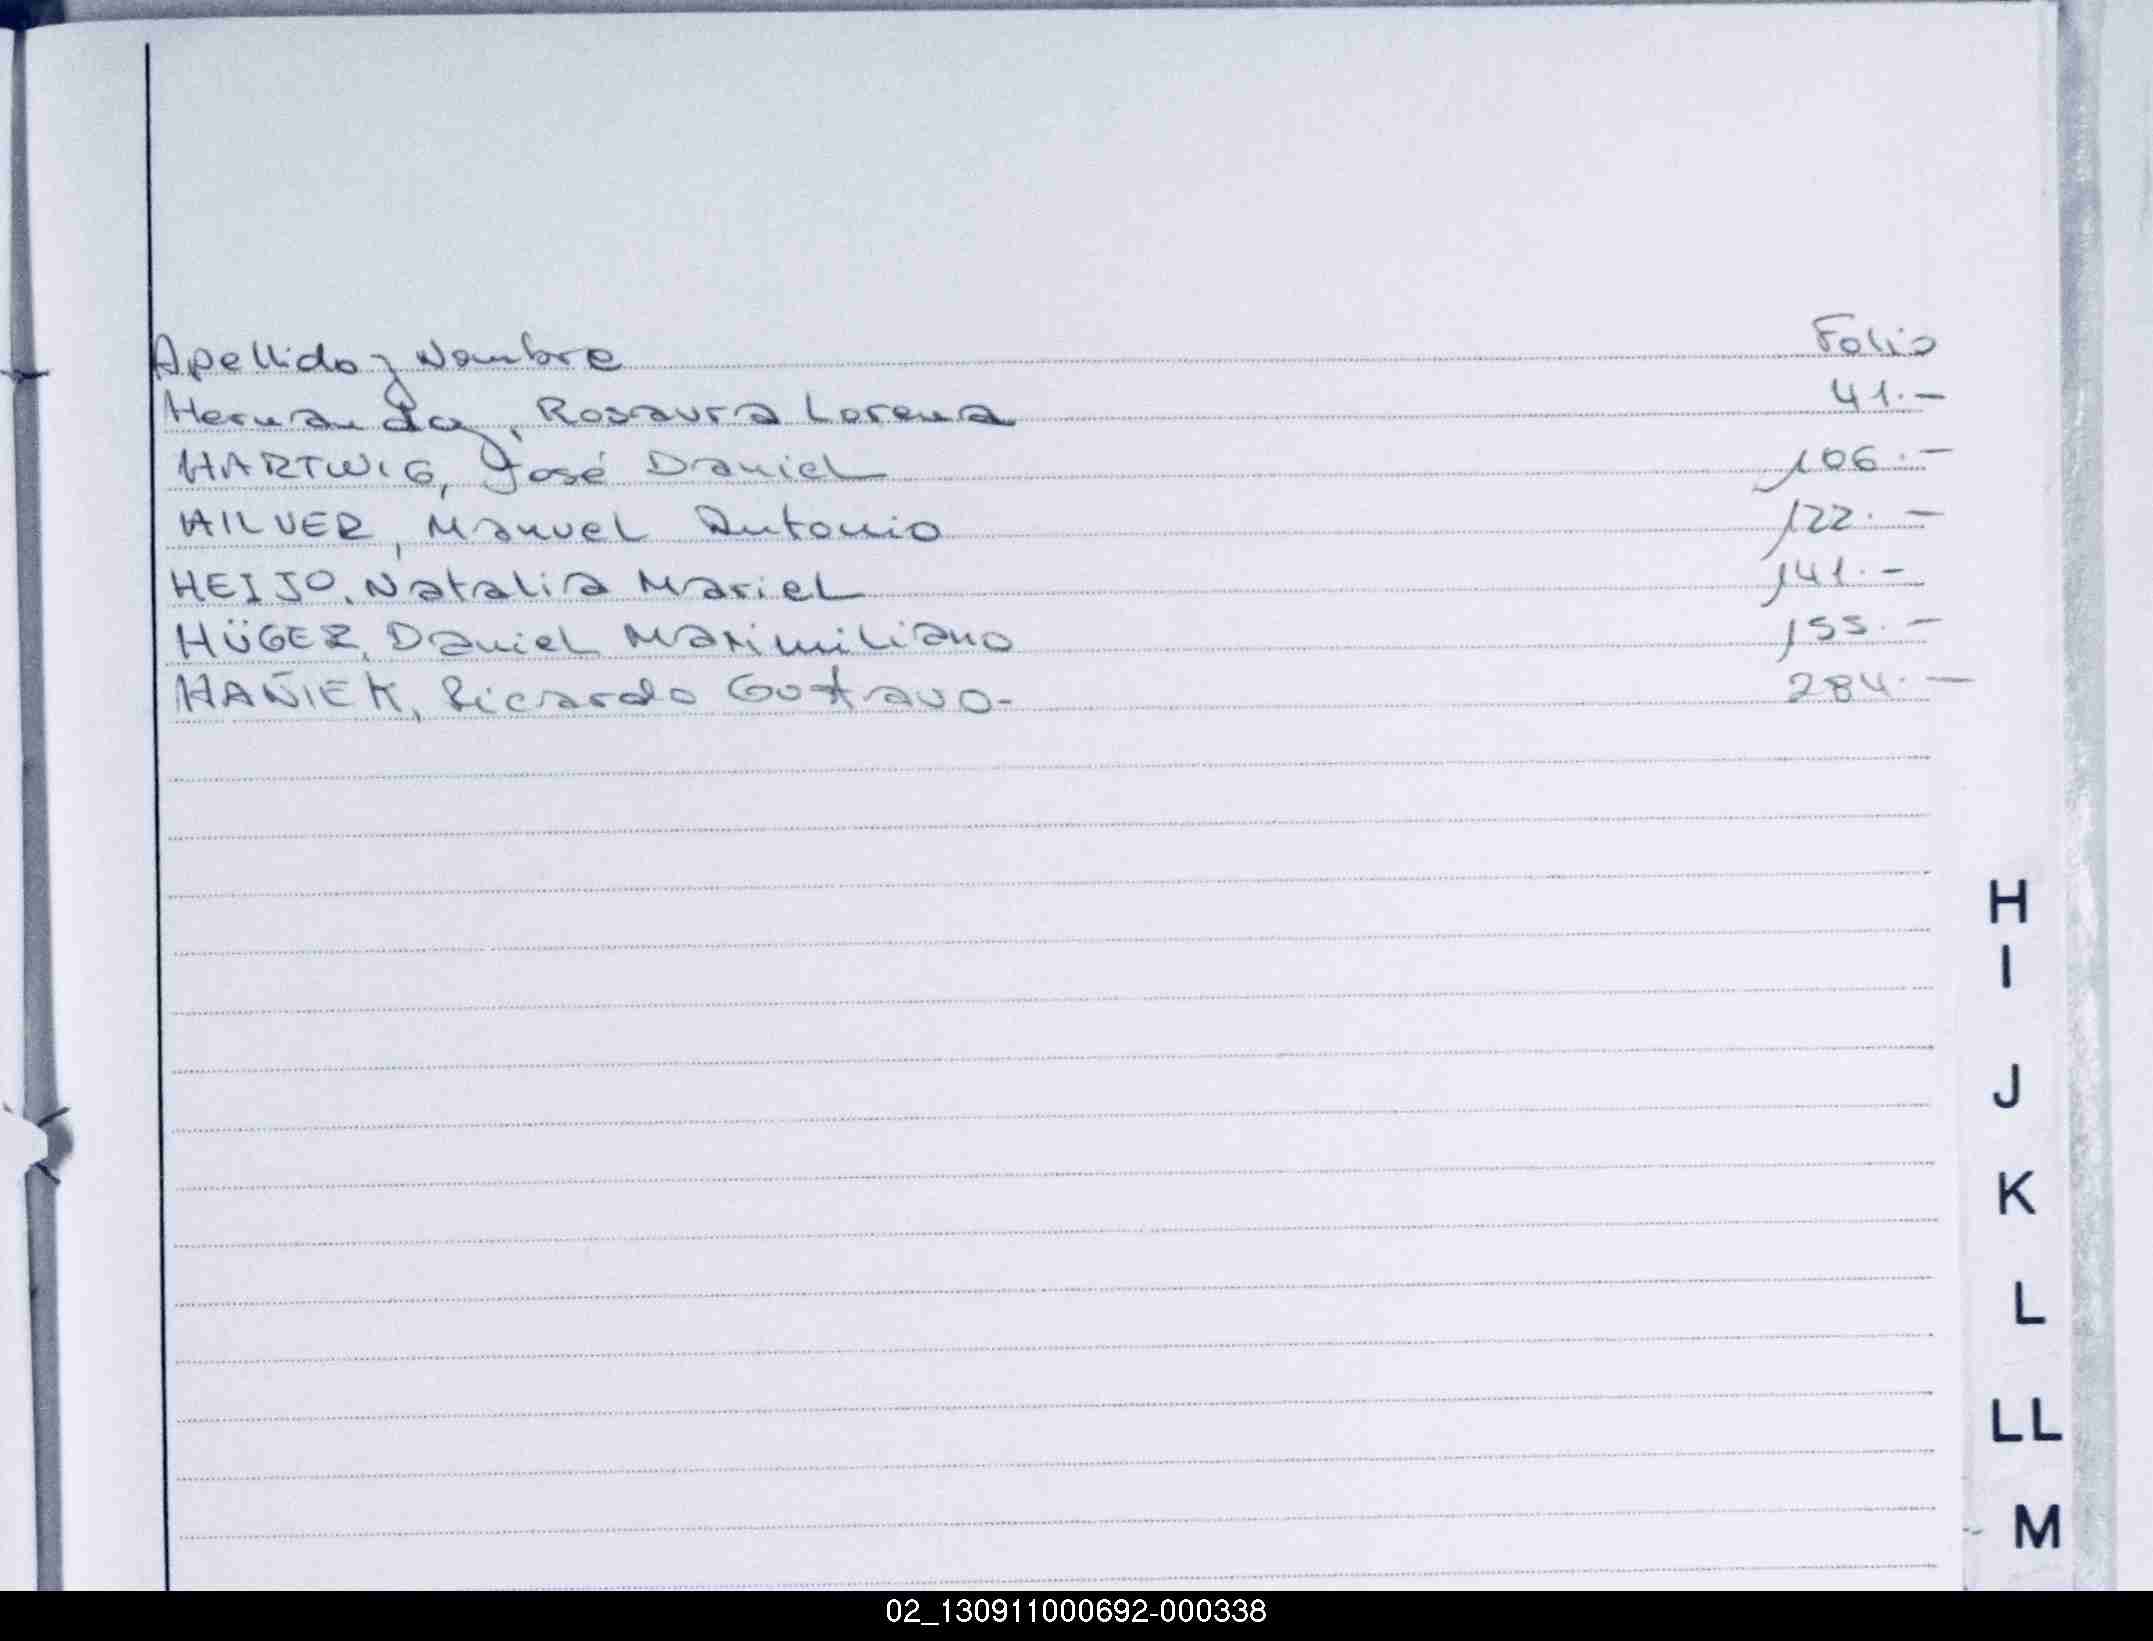 Apellido y Nombre Folio
Hernandez, Rosaura Lorena 41.-
HARTWIG, José Daniel 106.-
HILVER, Manuel Antonio 122.-
HEIJO, Natalia Mariel 141.-
HÜGER, Daniel Maximiliano 155.-
HAÑIEK, Ricardo Gustavo- 284.-
H
I
J
K
L
LL
M
02_130911000692-000338